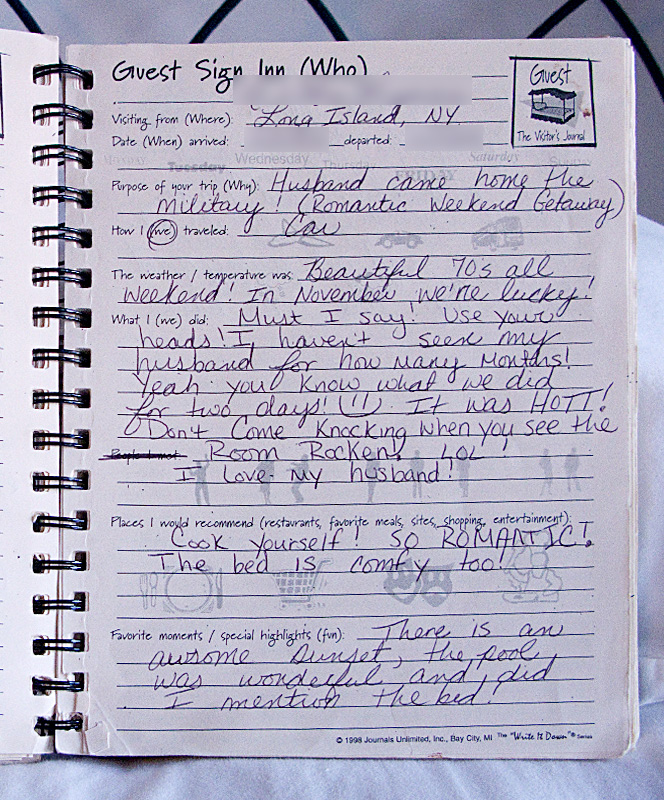 Guest Sign Inn (Who)
Guest
The Visitor's Journal
Visiting from (Where): Long Island, NY
Date (When) arrived: departed:
Monday Tuesday Wednesday Thursday FRIDAY Saturday Sunday
Purpose of your trip (Why): Husband came home the
military! (Romantic Weekend Getaway)
How I (we) traveled: Car
The weather / temperature was: Beautiful 70's all
weekend! In November we're lucky!
What I (we) did: Must I say! Use your
heads! I haven't seen my
husband for how many months!
Yeah you know what we did
for two days! It was HOTT!
Don't Come Knocking when you see the
People I met: Room Rocken, LOL!
I love my husband!
Places I would recommend (restaurants, favorite meals, sites, shopping, entertainment):
Cook yourself! SO ROMANTIC!
The bed is comfy too!
Favorite moments / special highlights (fun): There is an
awsome sunset, the pool
was wonderful and did
I mention the bed.
© 1998 Journals Unlimited, Inc., Bay City, MI The "Write It Down"® Series